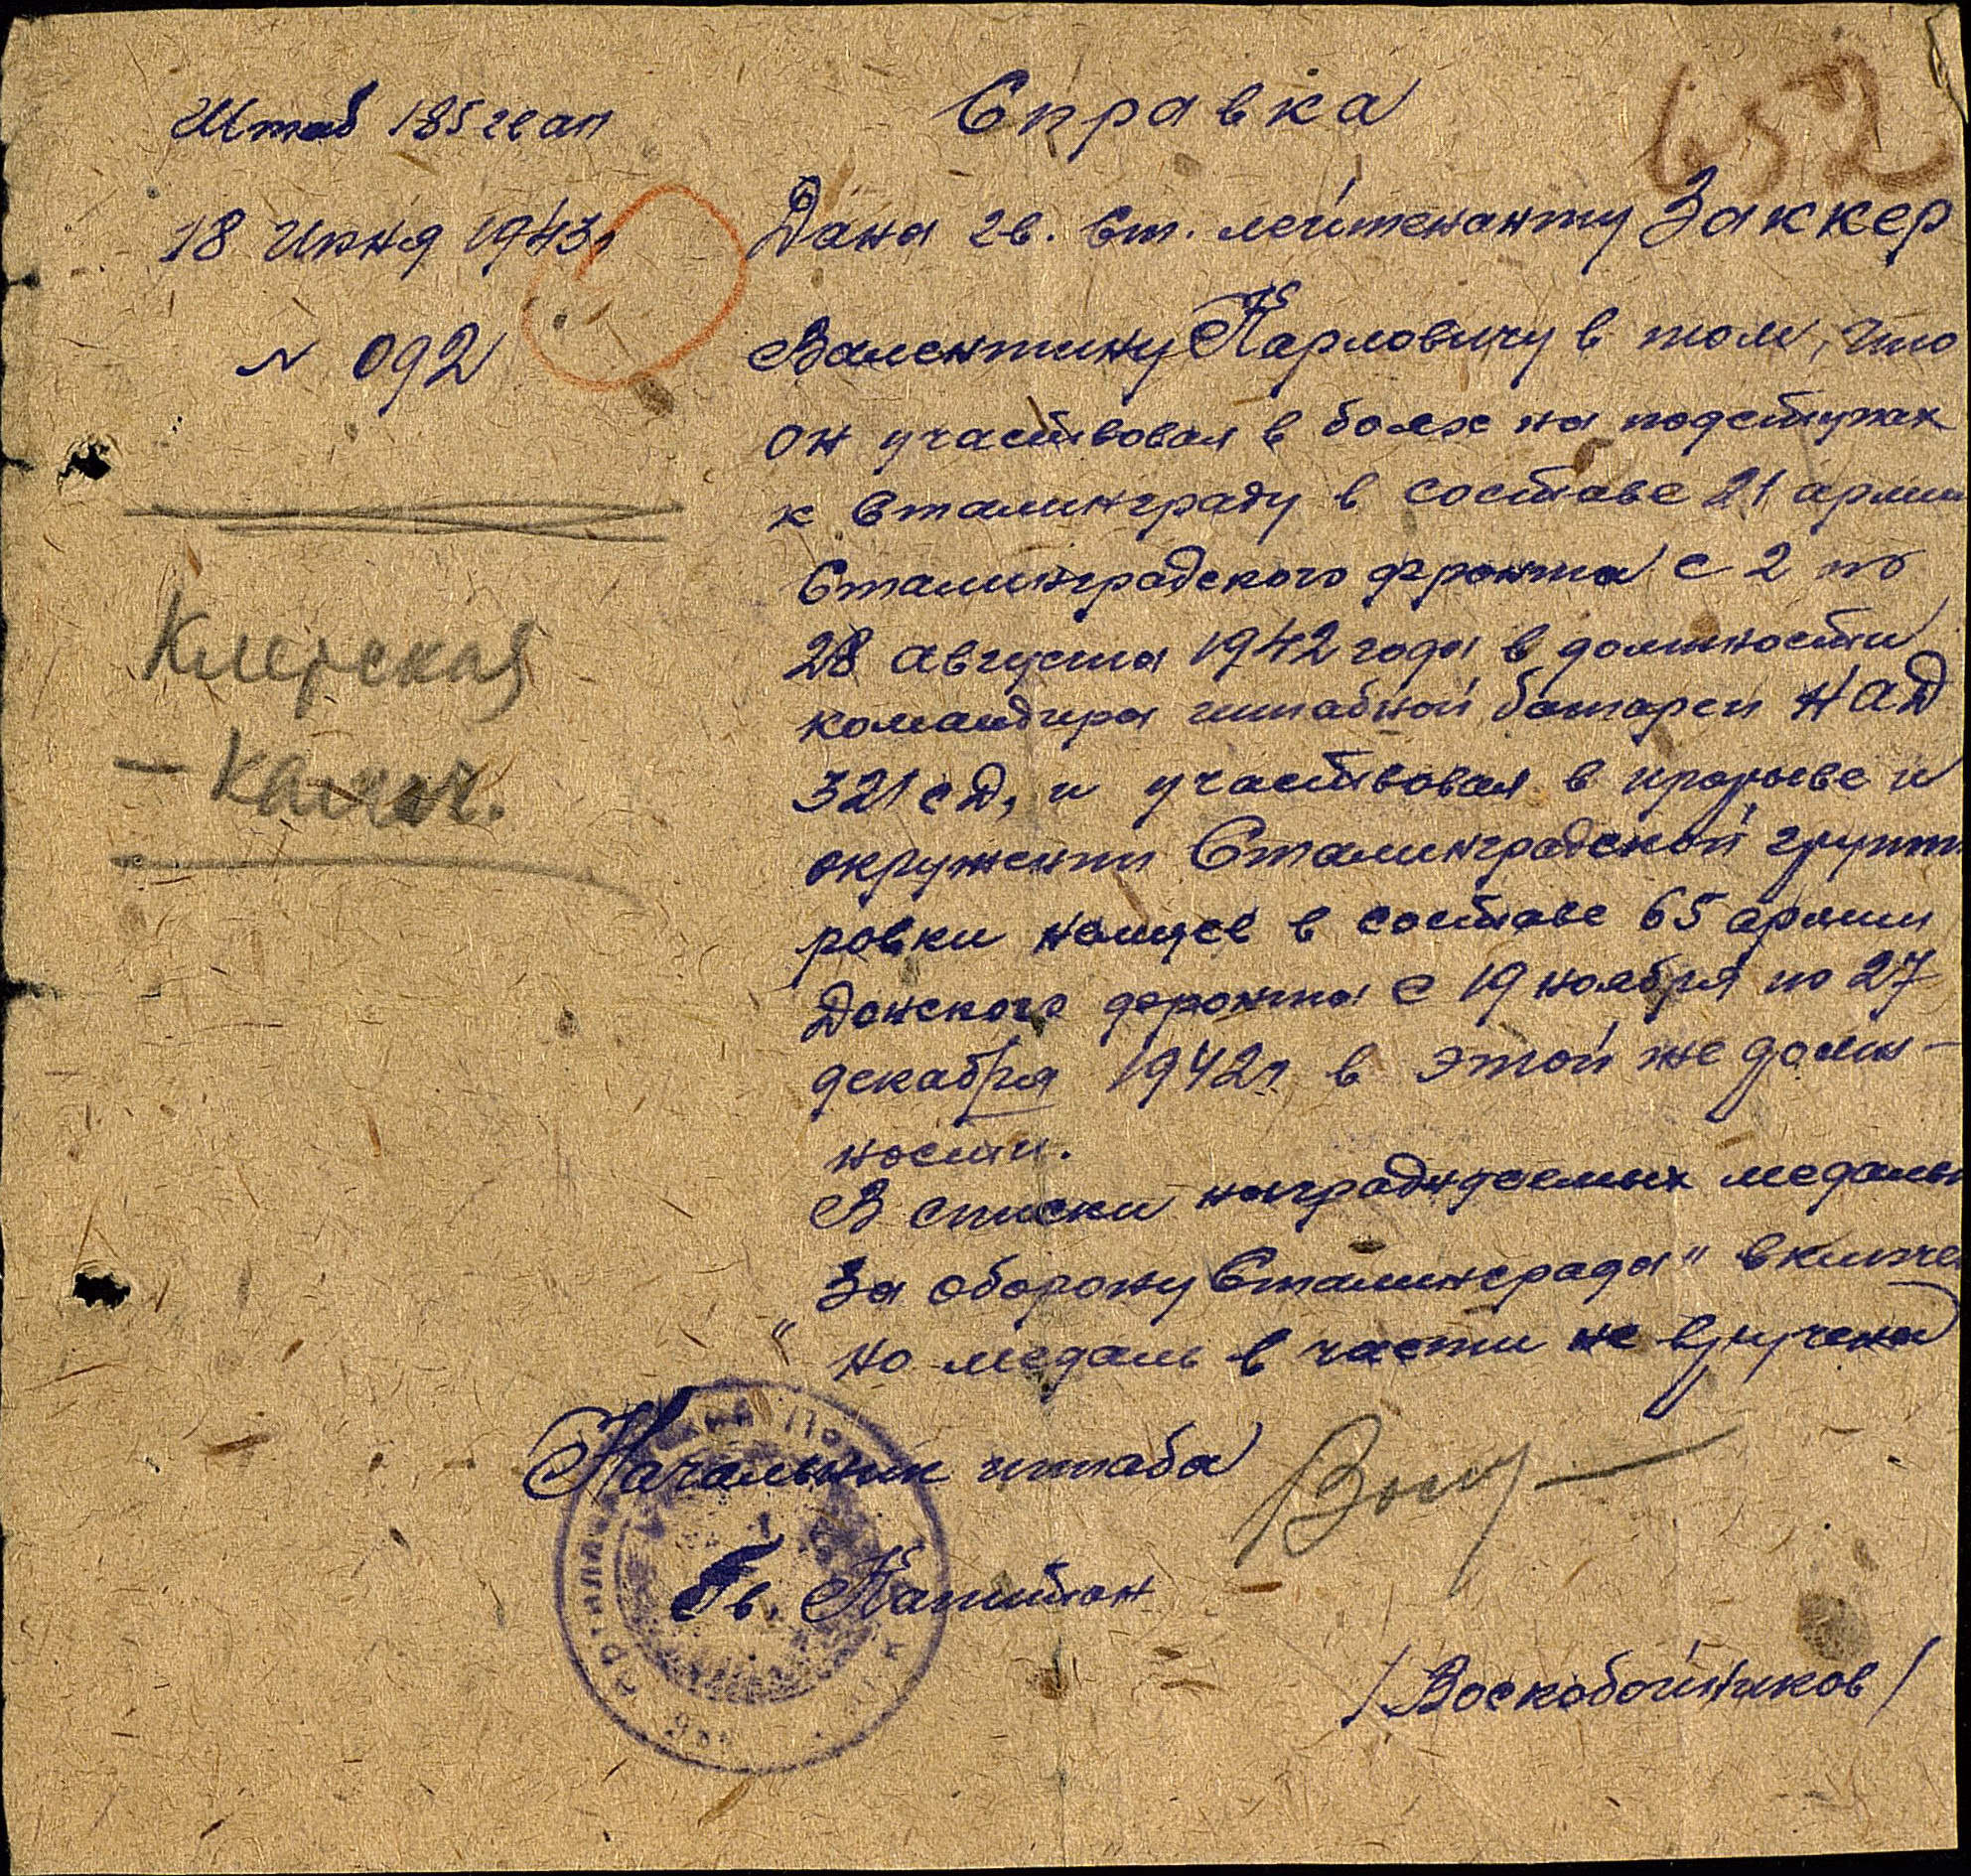 Справка
652
Штаб 185 гв ап
18 июня 1943г
N 092
Дана гв. Ст. лейтенанту Заккер
Валентину Карловичу в том, что
он участвовал в боях на подступах
к Сталинграду в составе 21 армии
Сталинградского фронта с 2 по
28 августа 1942 года в должности
командира штабной батареи НАД
321 сд, и участвовал в прорыве и
окружении Сталинградской группи
ровки немцев в составе 65 армии
Донского фронта с 19 ноября по 27
декабря 1942г в этой же долж-
ности.
В списки награждаемых медалью
"За оборону Сталинграда" включен
но медаль в части не вручена
Клетская
- Калач.
Начальник штаба
Гв. Капитан
/Воскобойников/